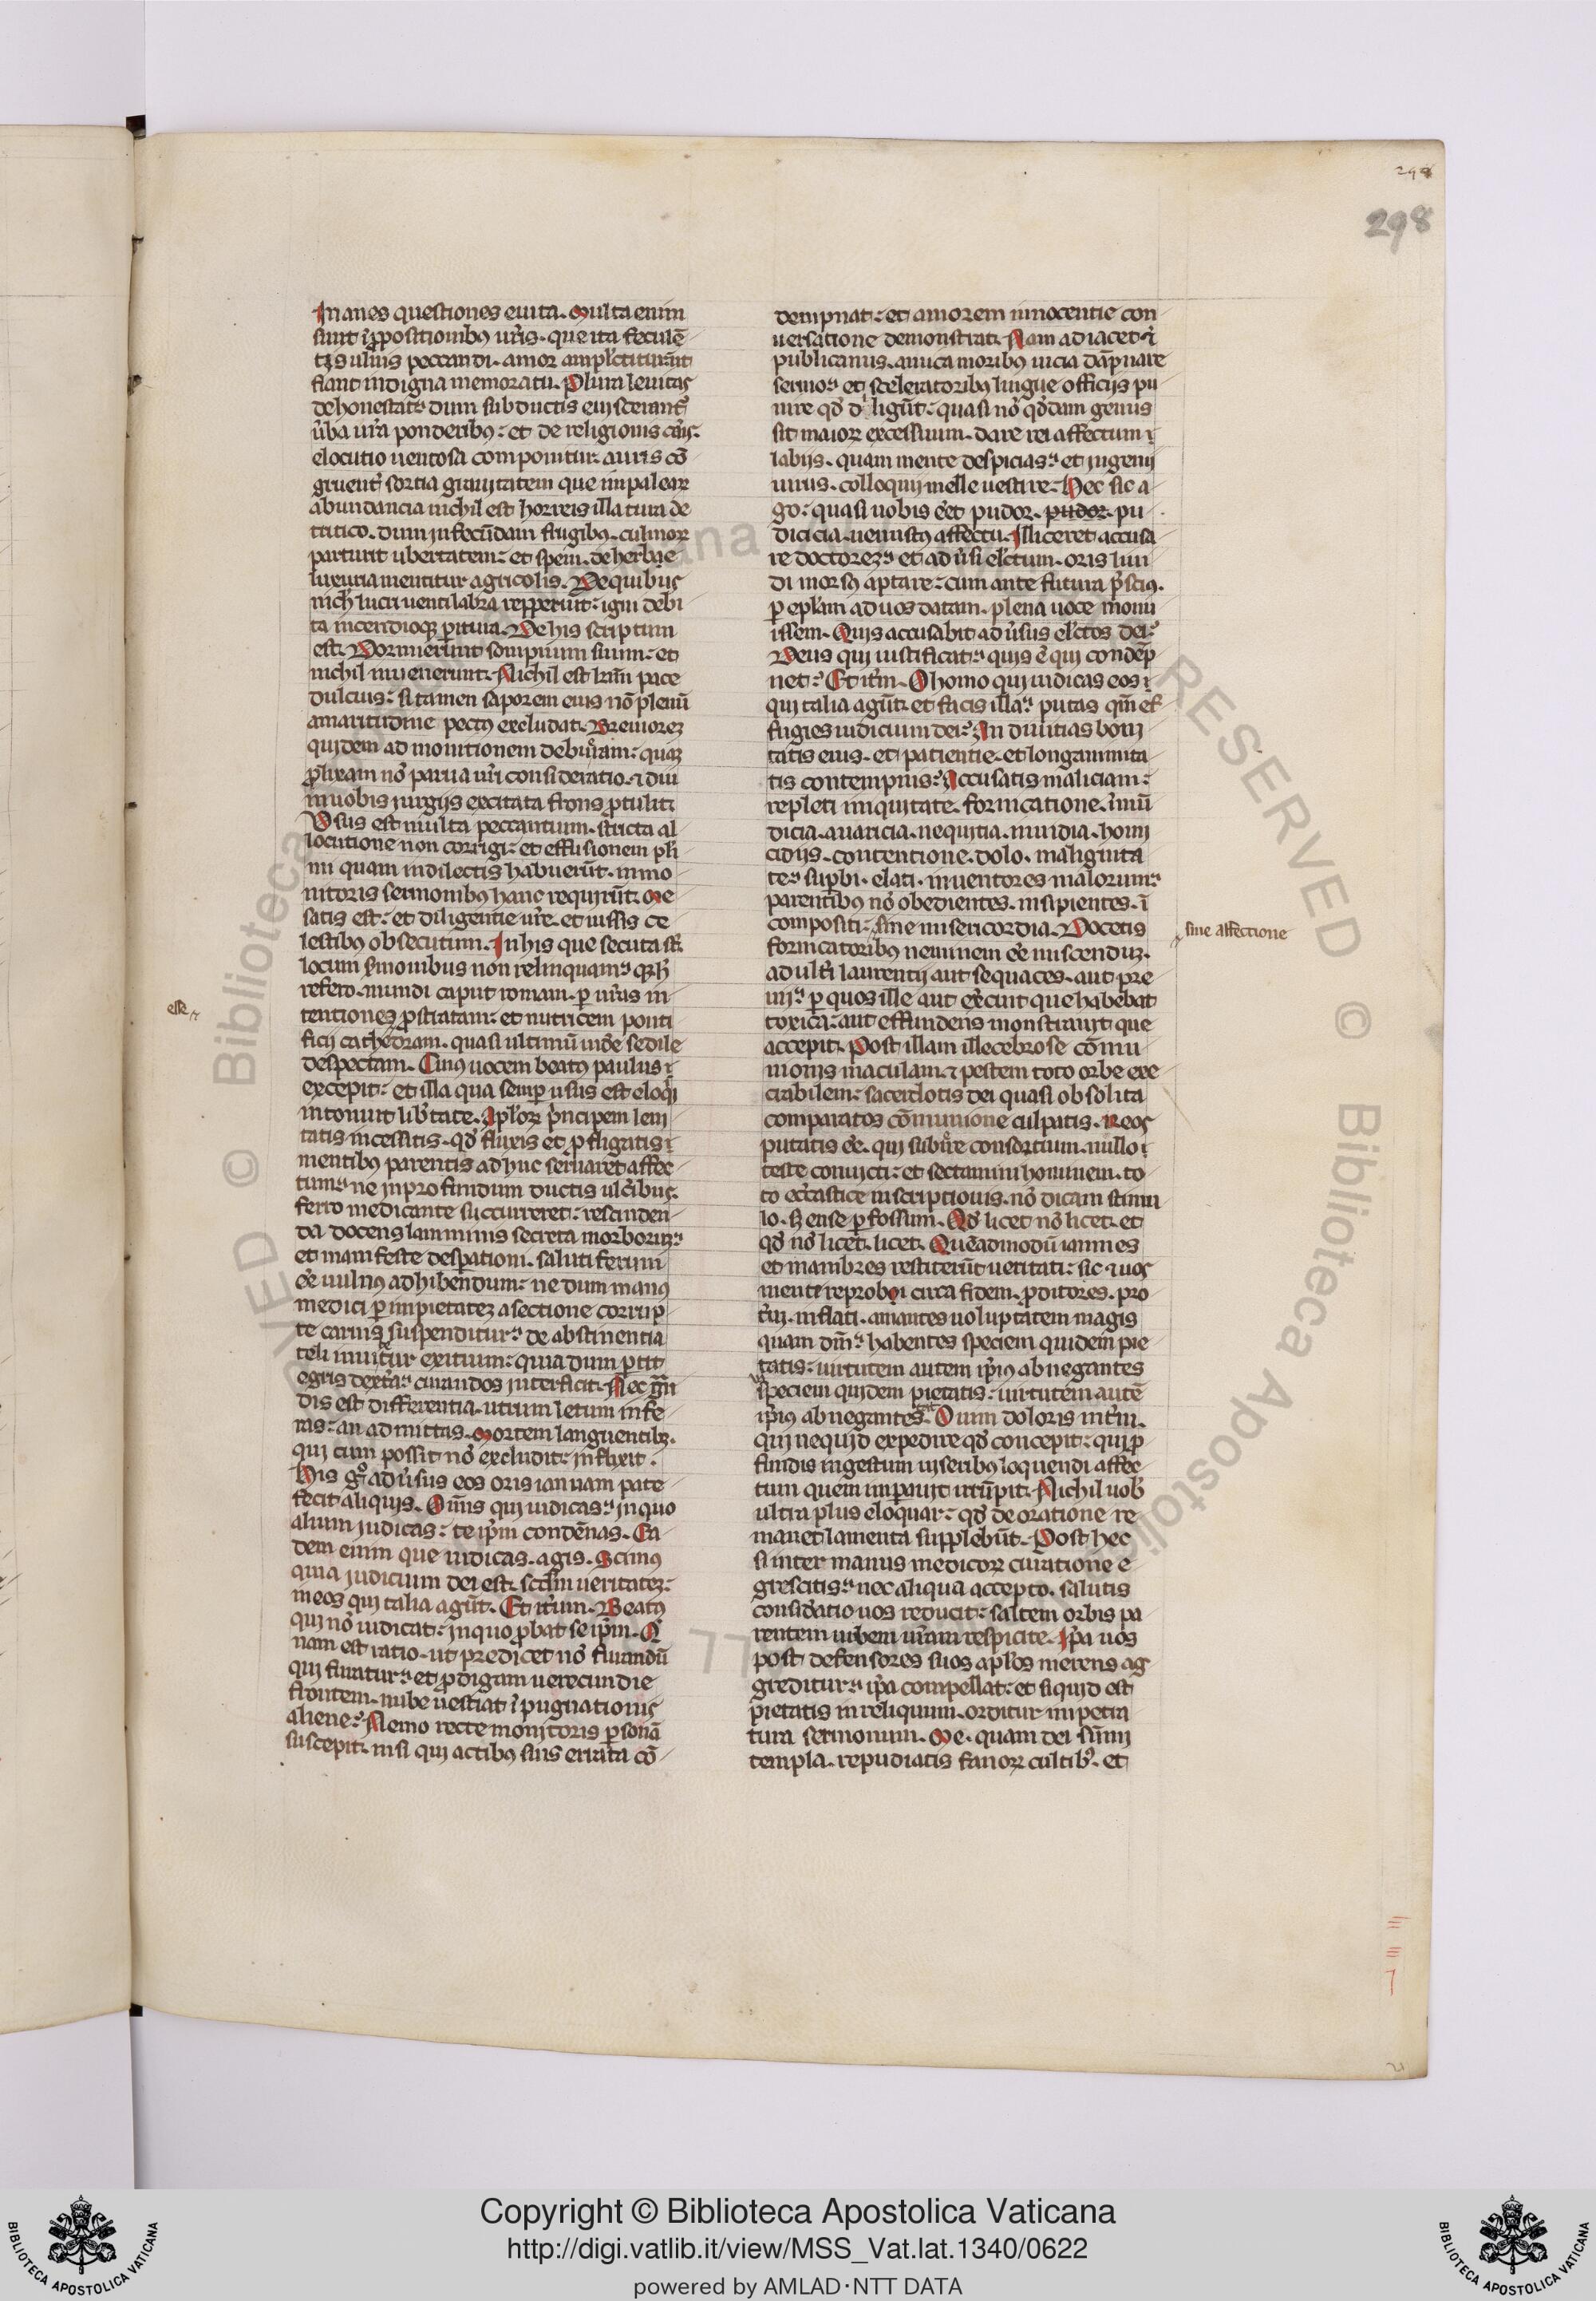 298
298
Inanes questiones euita. Multa enim
sunt ĩ ꝓpositionibꝰ ur̃is. que ita feculẽ
fiant indigna memoratu. Plura leuitas
elocutio uentosa componitur. auris cõ
abundancia nichil est horreis illatura de
tritico. dum infecũdam frugibus. culmoꝝ
parturit ubertatem: et spem. de herbae
luxuria mentitur agricolis. De quibus
ta incendioqꝫ ꝑitura. De his scriptum
est. Dormierunt sompnum suum: et
nichil inuenerunt. Nichil est kr̃mi pace
dulcius: si tamen saporem eius nõ plenũ
amaritudine pectus excludat. Breuiorez
quidem ad monitionem debuẽram: quaꝫ
ꝓlixam nõ parua ur̃i consideratio. ⁊ diu
in uobis iurgijs excitata frons ꝓtulit.
Usus est multa peccantium. stricta al
locutione non corrigi: et effusionem ꝑhẽ
ni quam in dilectis habuerũt. in mo
nitoris sermonibꝰ hanc requirũt. Me
satis est: et diligentie ur̃e. et iussis ce
lestibus obsecutum. In his que secuta st̃
locum sermonibus non relinquam:
refero. mundi caput romam. ꝑ ur̃as in
esse
tentiones ꝓstratam: et nutricem ponti
ficij cathedram. quasi ultimũ inde sedile
despectam. Cuius uocem beatus paulus
excepit: et illa qua semꝑ usus est eloqi
intonuit lib̃tate. Aplõꝝ p̃ncipem leni
tatis incessitis. qd̃ fluxis et ꝓfligatis
mentibꝰ parentis adhuc seruaret affec
tum: ne in profundum ductis ulcẽribus.
ferro medicante succurreret: rescinden
da docens lamminis secreta morborum:
et manifeste despation. salutiferum
eẽ uulnus adhibendum: ne dum manus
medici ꝑ impietatez a sectione corrup
te carnis suspenditur: de abstinentia
teli inuitetur exitium: quia dum ꝑcit
egris dextra: curandos interficit. Nec grã
dis est differentia. utrum letum infe
ras: an admittas. Mortem languentibꝫ.
qui cum possit nõ excludit: influxit.
His gͦ aduẽsus eos oris ianuam pate
fecit aliquis. Om̃is qui iudicas: in quo
alium iudicas: te ip̃m condẽnas. Ea
dem enim que iudicas. agis. Scimus
quia iudicium dei est. scdm̃ ueritatez:
in eos qui talia agũt. Et itr̃um. Beatus
qui nõ iudicat: in quo ꝓbat se ip̃m. Q
nam est ratio. ut predicet nõ furandũ
qui furatur: et ꝓdigam uerecundie
frontem. nube uestiat ĩpugnationis
aliene: Nemo recte monitoris ꝑsonã
suscepit. nisi qui actibꝰ suis errata cõ
dempnat: et amorem innocentie con
uersatione demonstrat. Nam adiacet ⁊
publicanus. amica moribꝰ uicia dãpnare
sermoẽ et sceleratoribꝰ lingue officijs pu
nire qd̃ diligũt: quasi nõ qd̃dam genus
sit maioꝝ excessuum. dare rei affectum
labijs. quam mente despicias: et ingenij
uirus. colloquij melle uestire. Hec sic a
go: quasi uobis eẽt pudor. pudor pu
dicicia. uenustus affectus. Illiceret accusa
re doctorez: et aduẽsi elẽctum. oris liui
di morsus aptare: cum ante futura p̃scius.
ꝑ eplam̃ ad uos datam. plena uoce monu
issem. Quis accusabit aduẽsus elẽctos dei:
Deus qui iustificat: quis ẽ qui condẽp
net: Et itr̃m. O homo qui iudicas eos
qui talia agũt. et facis illa: putas qm̃ ef
fugies iudicium dei: An diuitias boni
tatis eius. et patientie. et longanimita
tis contempnis: Accusatis maliciam:
repleti iniquitate. fornicatione. imũ
dicia. auaricia. nequitia. inuidia. homi
cidijs. contentione. dolo. maligniita
te: suꝑbi. elati. inuentores malorum:
parentibus nõ obedientes. insipientes. ĩ
compositi: sine misericordia. Docetis
sine affectione
fornicatoribus neminem eẽ miscenduz.
adultẽri laurentij aut sequaces. aut pre
uij: ꝑ quos ille aut exercuit que habebat
toxica: aut effundens monstrauit que
accepit. Post illam illecebrose cõmu
nionis maculam. ⁊ pestem toto orbe exe
crabilem: sacerdotis dei quasi obsolita
comparatos cõmunione culpatis. Reos
putatis eẽ. qui subiere consortium. nullo
teste conuicti: et sectamini hominem. to
to ecclastice inscriptionis. nõ dicam stimu
lo. sꝫ ense ꝑfossum. Qd̃ licet nõ licet. et
qd̃ nõ licet. licet. Quẽadmodũ iamnes
et mambres restiterũt ueritati: sic ⁊ uos
mente reprobi circa fidem. ꝓditores. pro
tẽrui. inflati. amantes uoluptatem magis
quam dm̃: habentes speciem quidem pie
tatis: uirtutem autem ip̃ius abnegantes
speciem quidem pietatis: uirtutem autẽ
ip̃ius abnegantes. Dum doloris intẽrim.
qui nequid expedire qd̃ concepit: qui ꝓ
fundis ingestum uisceribus loquendi affec
tum quem imparauit irrũpit. Nichil uob̃
ultra plus eloquar: qd̃ de oratione re
manet lamenta supplebũt. Post hec
si inter manus medicoꝝ curatione e
grescitis: nec aliqua accepto. salutis
considẽratio uos reducit: saltem orbis pa
rentem urbem ur̃am respicite. Ip̃a uos
post defensores suos aplõs merens ag
greditur: ip̃a compellat: et si quid est
pietatis in reliquum. orditur impetra
tura sermonum. Me. quam dei sum̃i
templa. repudiatis fanoꝝ cultibꝰ. et
Copyright © Biblioteca Apostolica Vaticana
http://digi.vatlib.it/view/MSS_Vat.lat.1340/0622
powered by AMLAD·NTT DATA
BIBLIOTECA APOSTOLICA VATICANA
BIBLIOTECA APOSTOLICA VATICANA